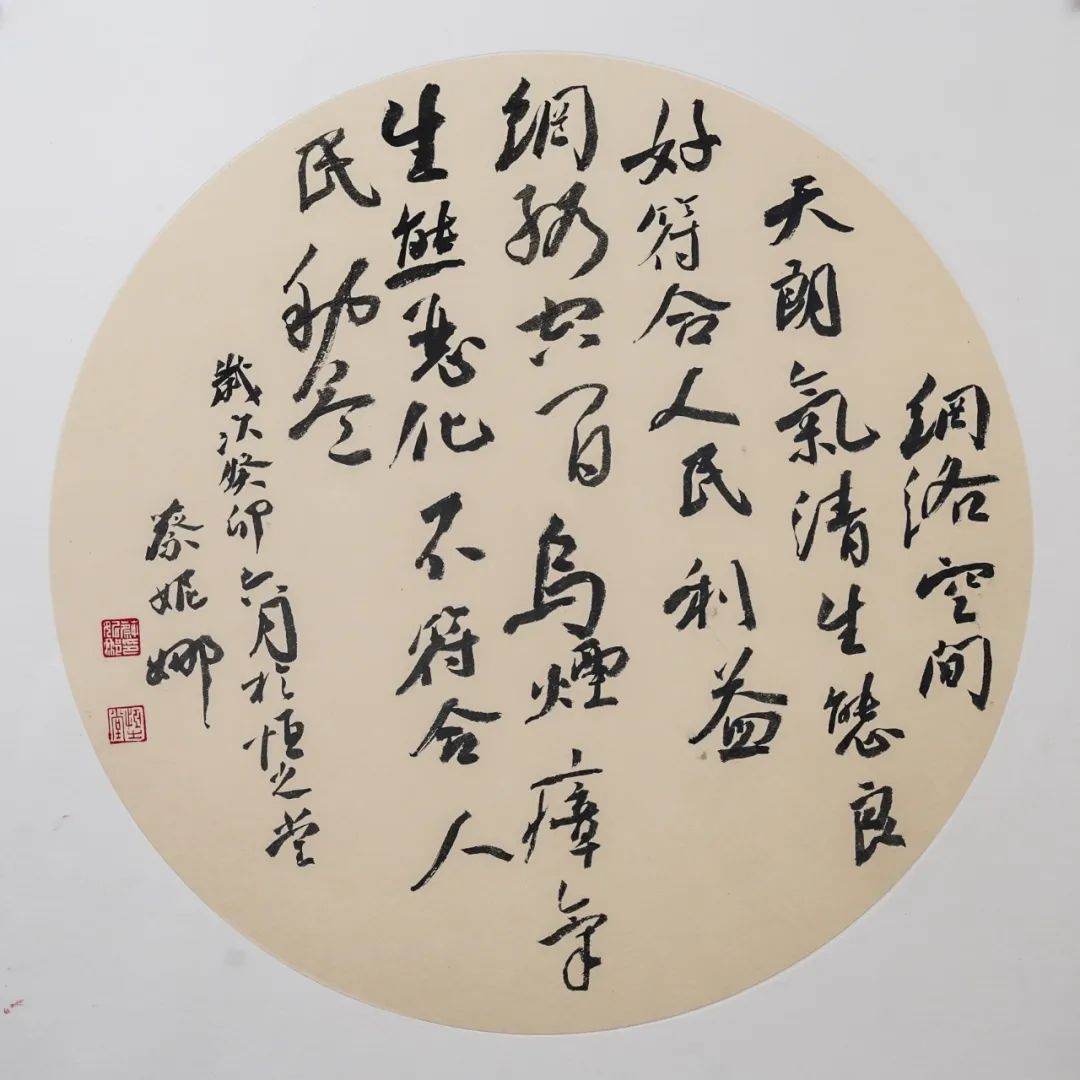 網洛空間
天朗氣清生態良
好符合人民利益
網絡空间烏煙瘴气
生態恶化不符合人
民利益
歲次癸卯六月於恒之堂
蔡妮娜